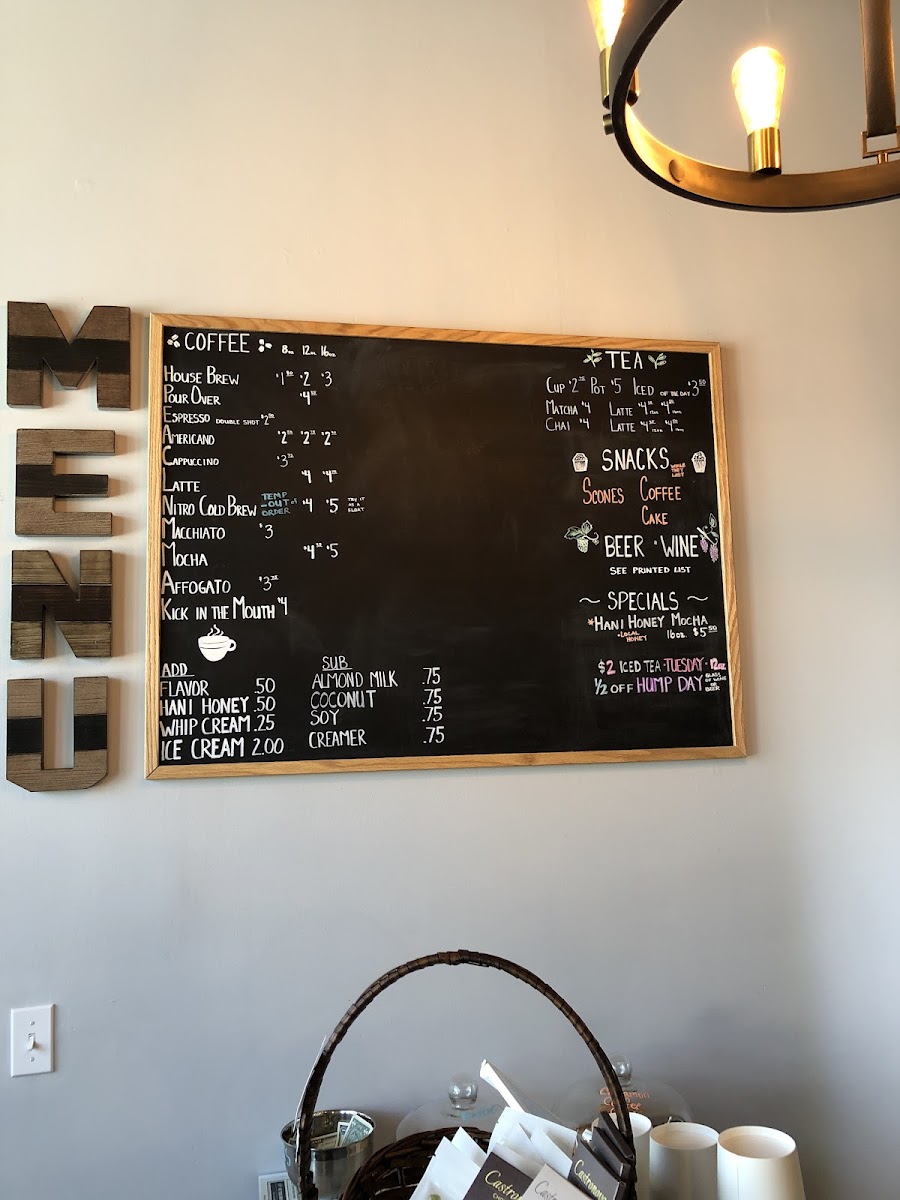 MENU
COFFEE 8oz 12oz 16oz
HOUSE BREW $2 $3
POUR OVER
ESPRESSO DOUBLE SHOT
AMERICANO
CAPPUCCINO
LATTE
NITRO COLD BREW TEMP OUT OF ORDER $4 $5 TRY IT AS A FLOAT
MACCHIATO $3
MOCHA $5
AFFOGATO
KICK IN THE MOUTH $4
ADD
FLAVOR .50
HANI HONEY .50
WHIP CREAM .25
ICE CREAM 2.00
SUB
ALMOND MILK .75
COCONUT .75
SOY .75
CREAMER .75
TEA
CUP POT $5 ICED OF THE DAY $3.50
MATCHA $4 LATTE
CHAI $4 LATTE
SNACKS WHILE THEY LAST
SCONES COFFEE
CAKE
BEER · WINE
SEE PRINTED LIST
~ SPECIALS ~
*HANI HONEY MOCHA
*LOCAL HONEY 16oz. $5.50
$2 ICED TEA · TUESDAY · 12oz
1/2 OFF HUMP DAY GLASS OF WINE OR BEER